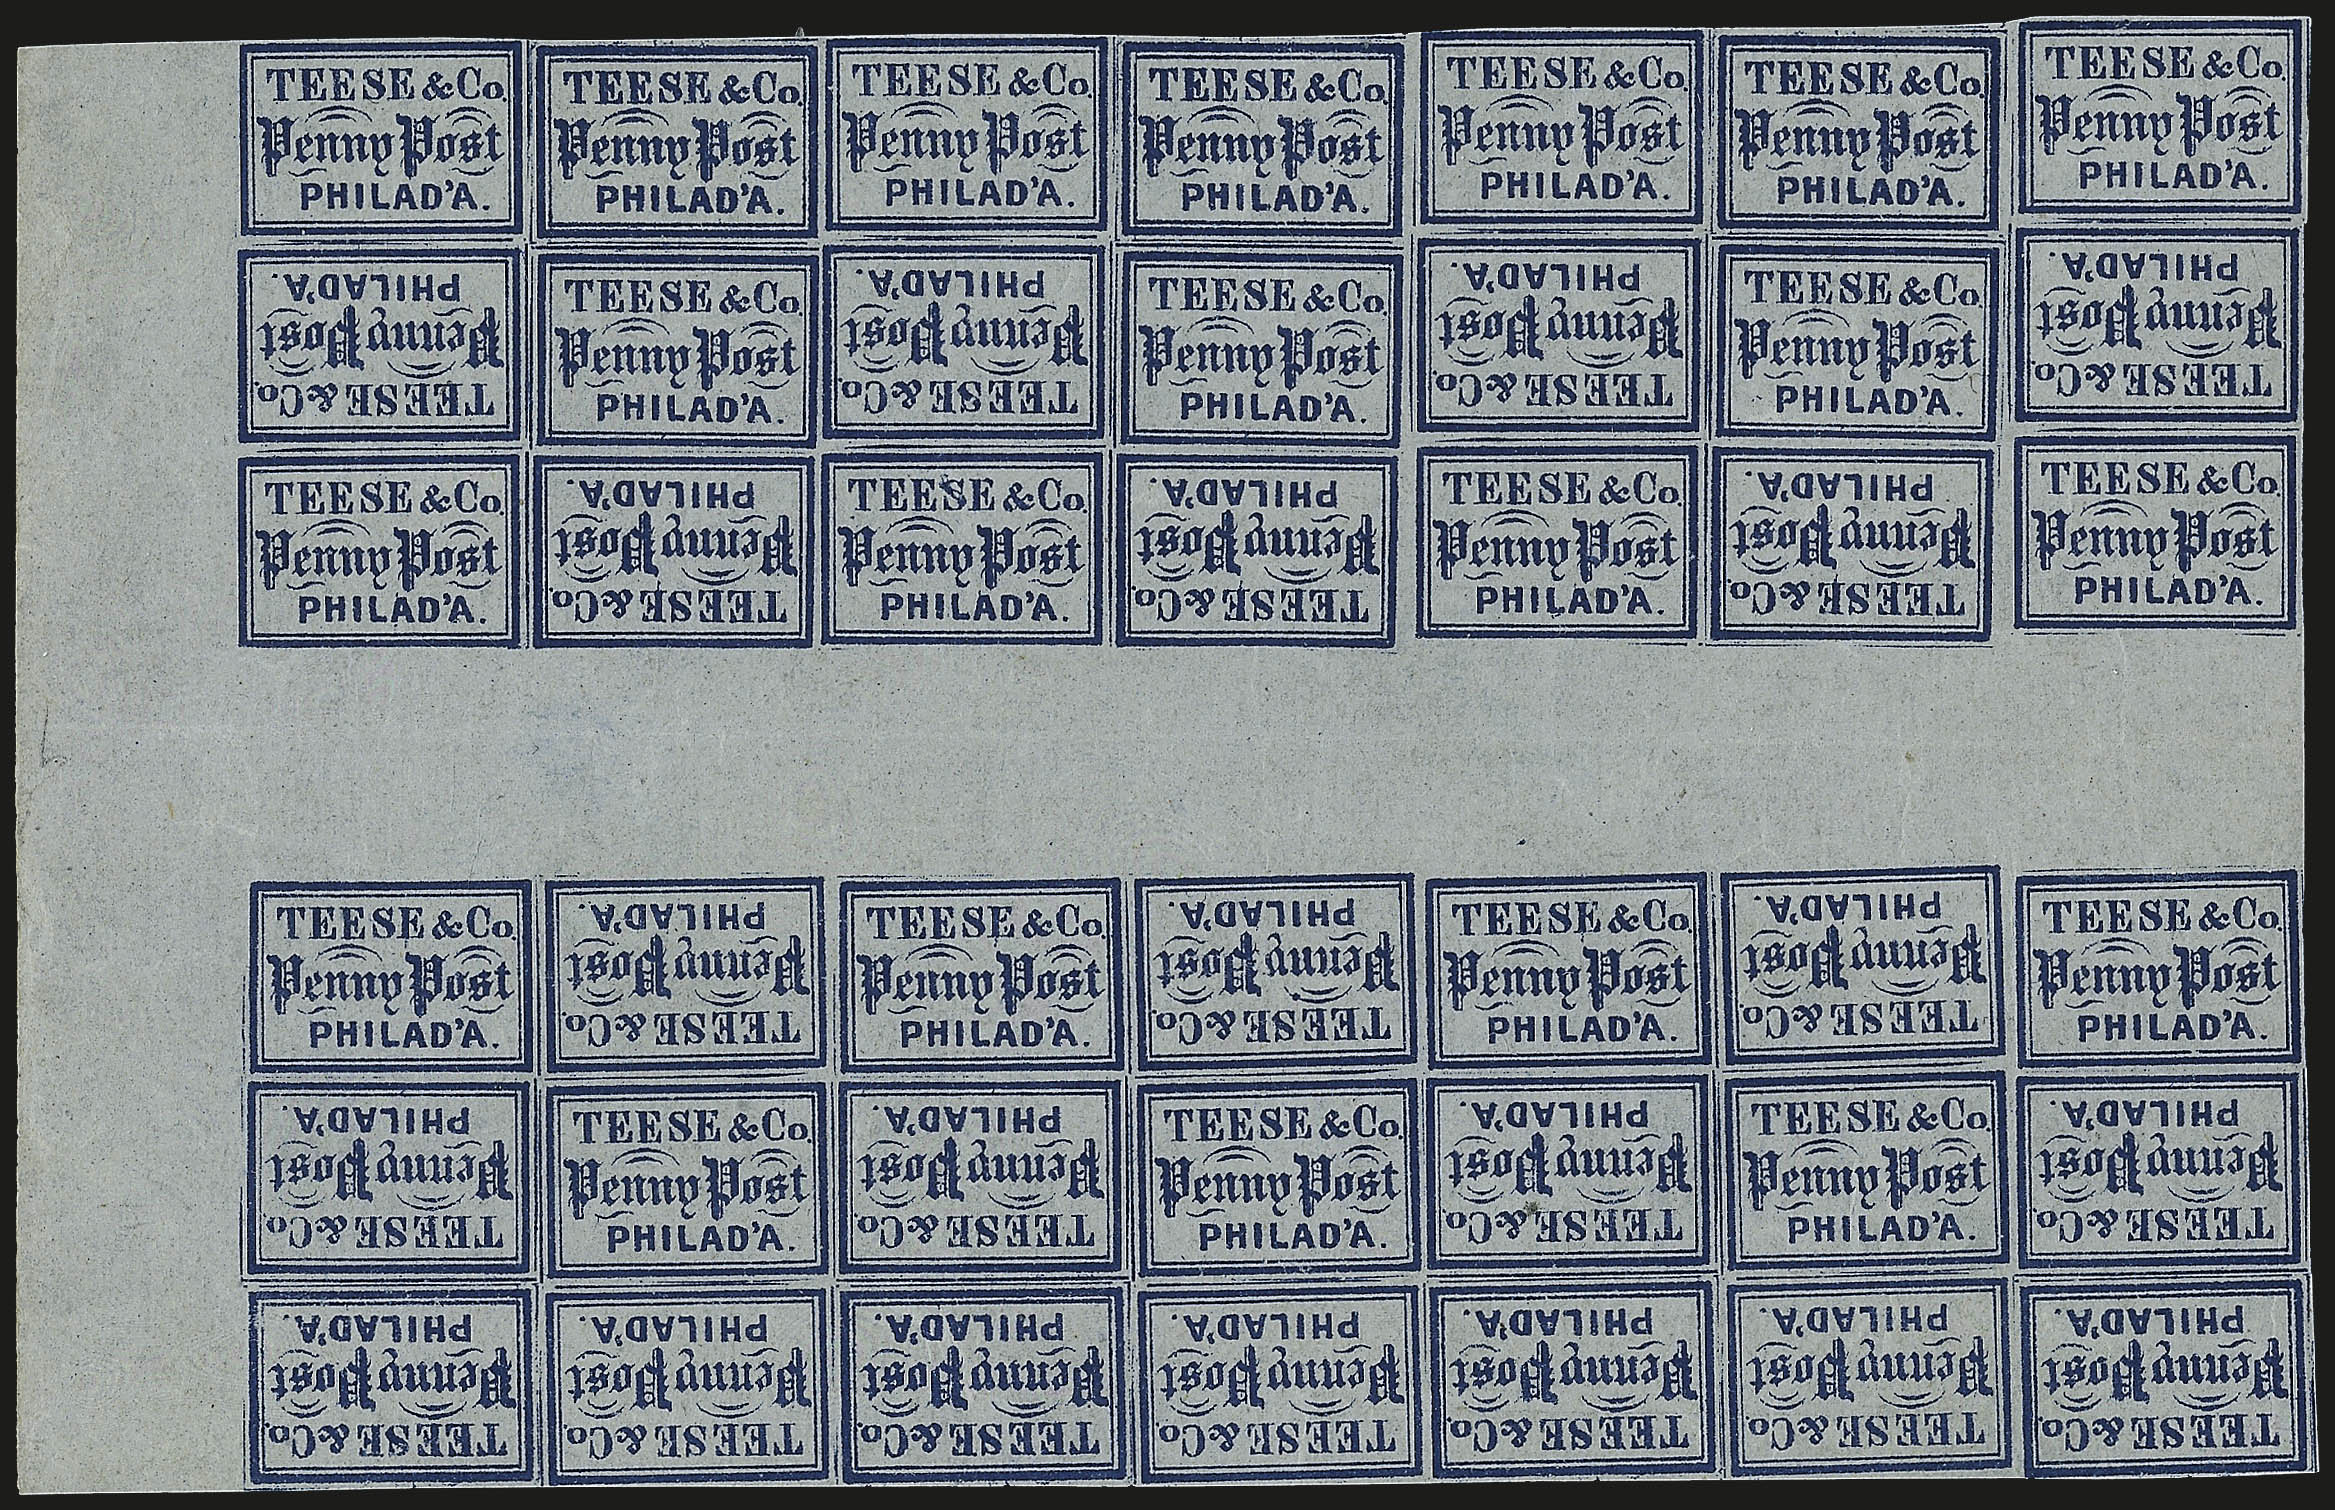 TEESE & Co.
Penny Post
PHILAD'A.
TEESE & Co.
Penny Post
PHILAD'A.
TEESE & Co.
Penny Post
PHILAD'A.
TEESE & Co.
Penny Post
PHILAD'A.
TEESE & Co.
Penny Post
PHILAD'A.
TEESE & Co.
Penny Post
PHILAD'A.
TEESE & Co.
Penny Post
PHILAD'A.
TEESE & Co.
Penny Post
PHILAD'A.
TEESE & Co.
Penny Post
PHILAD'A.
TEESE & Co.
Penny Post
PHILAD'A.
TEESE & Co.
Penny Post
PHILAD'A.
TEESE & Co.
Penny Post
PHILAD'A.
TEESE & Co.
Penny Post
PHILAD'A.
TEESE & Co.
Penny Post
PHILAD'A.
TEESE & Co.
Penny Post
PHILAD'A.
TEESE & Co.
Penny Post
PHILAD'A.
TEESE & Co.
Penny Post
PHILAD'A.
TEESE & Co.
Penny Post
PHILAD'A.
TEESE & Co.
Penny Post
PHILAD'A.
TEESE & Co.
Penny Post
PHILAD'A.
TEESE & Co.
Penny Post
PHILAD'A.
TEESE & Co.
Penny Post
PHILAD'A.
TEESE & Co.
Penny Post
PHILAD'A.
TEESE & Co.
Penny Post
PHILAD'A.
TEESE & Co.
Penny Post
PHILAD'A.
TEESE & Co.
Penny Post
PHILAD'A.
TEESE & Co.
Penny Post
PHILAD'A.
TEESE & Co.
Penny Post
PHILAD'A.
TEESE & Co.
Penny Post
PHILAD'A.
TEESE & Co.
Penny Post
PHILAD'A.
TEESE & Co.
Penny Post
PHILAD'A.
TEESE & Co.
Penny Post
PHILAD'A.
TEESE & Co.
Penny Post
PHILAD'A.
TEESE & Co.
Penny Post
PHILAD'A.
TEESE & Co.
Penny Post
PHILAD'A.
TEESE & Co.
Penny Post
PHILAD'A.
TEESE & Co.
Penny Post
PHILAD'A.
TEESE & Co.
Penny Post
PHILAD'A.
TEESE & Co.
Penny Post
PHILAD'A.
TEESE & Co.
Penny Post
PHILAD'A.
TEESE & Co.
Penny Post
PHILAD'A.
TEESE & Co.
Penny Post
PHILAD'A.